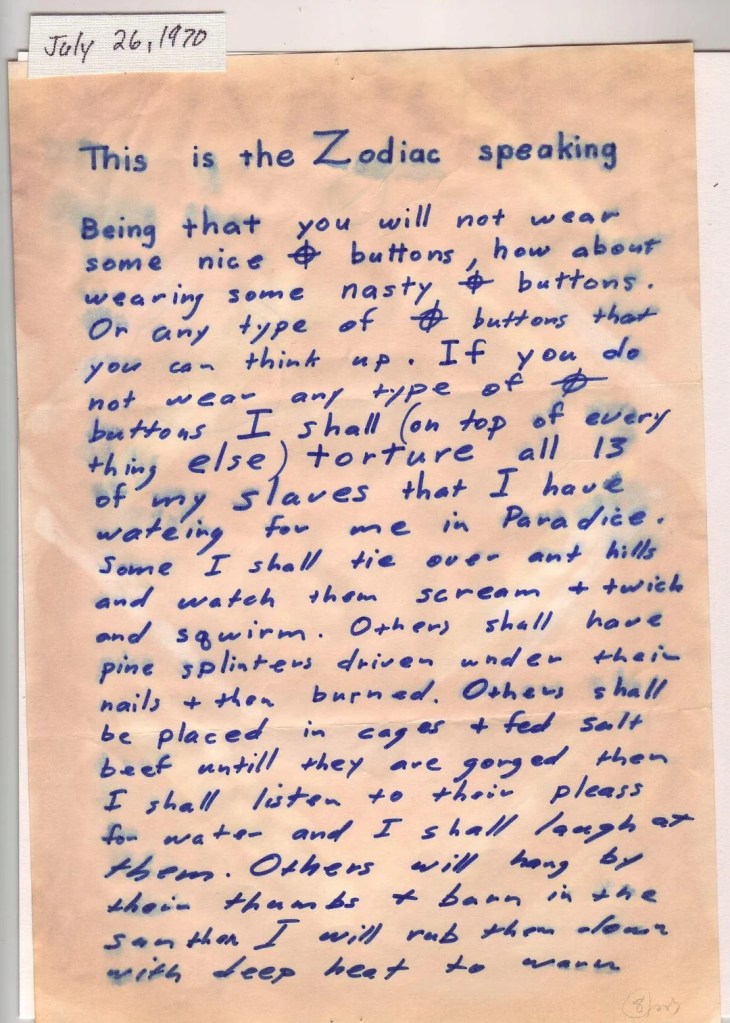 July 26, 1970
This is the Zodiac speaking
Being that you will not wear
some nice ⌖ buttons, how about
wearing some nasty ⌖ buttons.
Or any type of ⌖ buttons that
you can think up. If you do
not wear any type of ⌖
buttons I shall (on top of every
thing else) torture all 13
of my slaves that I have
wateing for me in Paradice.
Some I shall tie over ant hills
and watch them scream + twich
and squirm. Others shall have
pine splinters driven under their
nails + then burned. Others shall
be placed in cages + fed salt
beef untill they are gorged then
I shall listen to their pleass
for water and I shall laugh at
them. Others will hang by
their thumbs + burn in the
sun then I will rub them down
with deep heat to warm